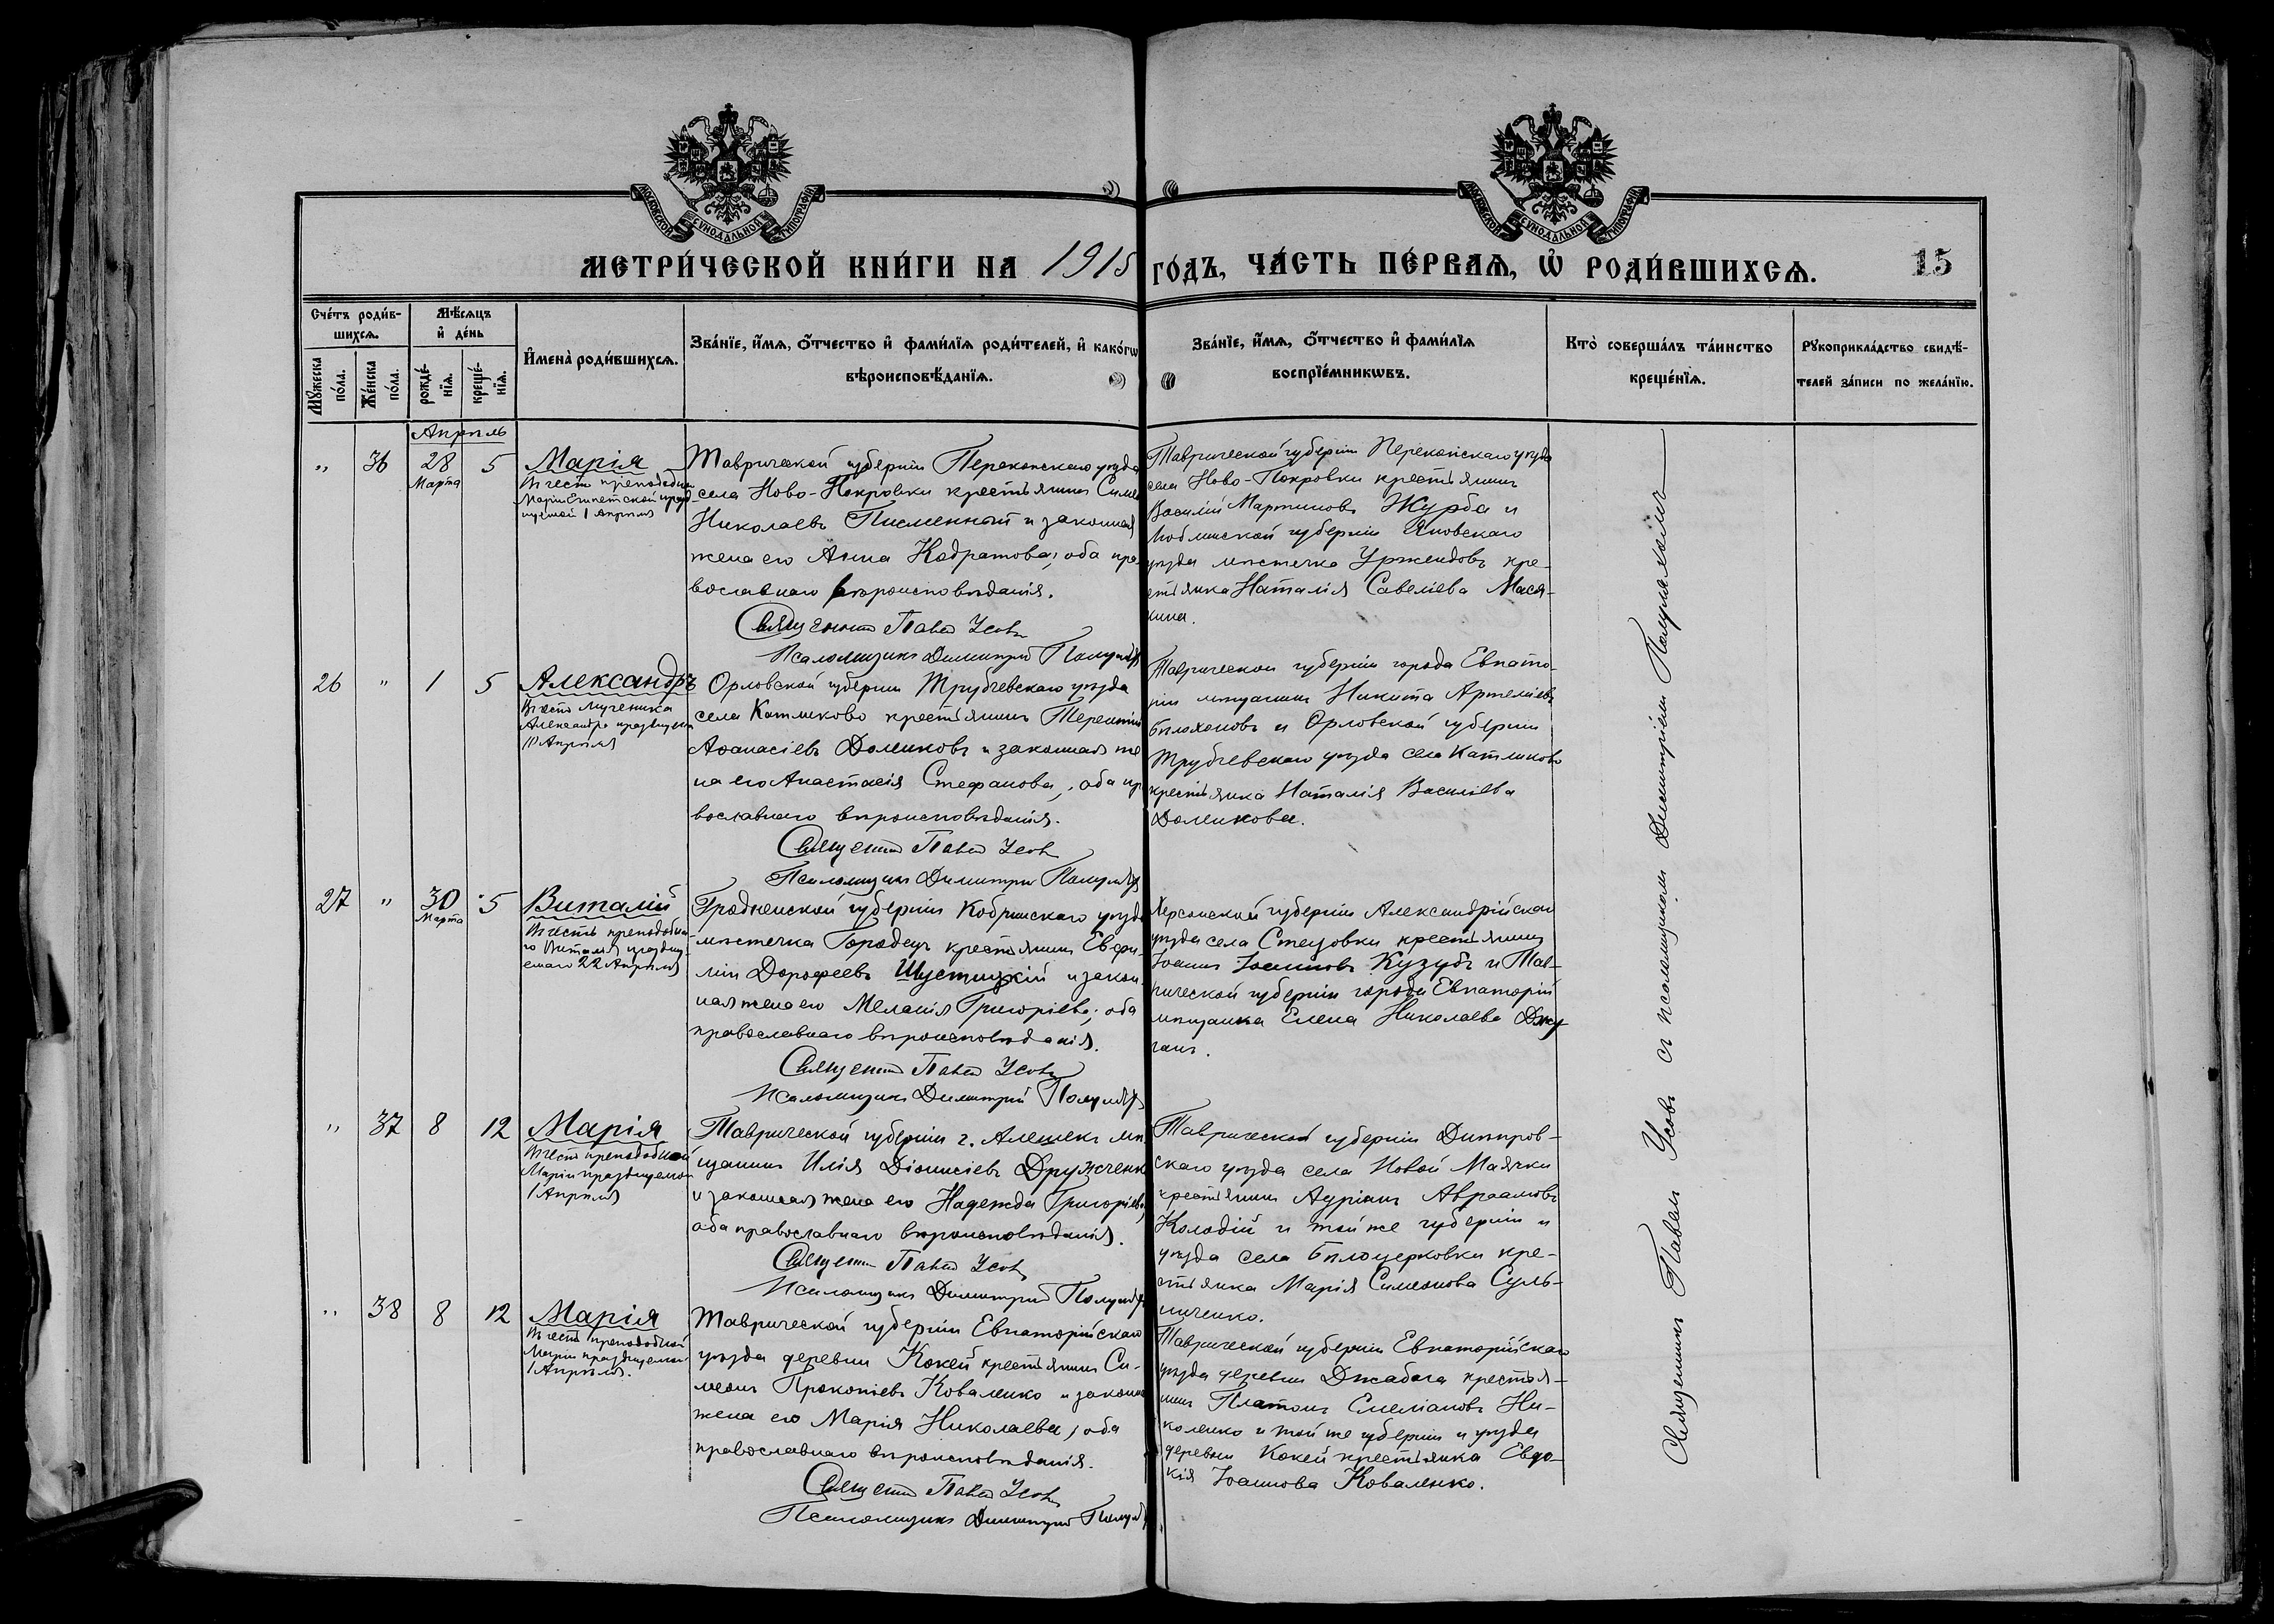 МОСКОВСКОЙ СѴНОДАЛЬНОЙ ТИПОГРАФІИ
МОСКОВСКОЙ СѴНОДАЛЬНОЙ ТИПОГРАФІИ
МЕТРИ́ЧЕСКОЙ КНИ́ГИ НА 1915 ГО́ДЪ, ЧА́СТЬ ПЕ́РВАѦ, Ѡ҆ РОДИ́ВШИХСѦ.
15
Сче́тъ роди́в-
шихсѧ.
Мꙋ́жеска по́ла.
Же́нска по́ла.
Мѣ́сѧцъ
и҆ де́нь
рожде́-
нїѧ.
креще́-
нїѧ.
И҆мена̀ роди́вшихсѧ.
Зва́нїе, и҆́мѧ, ѻ҆́тчество и҆ фами́лїѧ роди́телей, и҆ како́гѡ
вѣроисповѣ́данїѧ.
Зва́нїе, и҆́мѧ, ѻ҆́тчество и҆ фами́лїѧ
воспрїе́мникѡвъ.
Кто̀ соверша́лъ та́инство
креще́нїѧ.
Рꙋкоприкла́дство свидѣ́-
телей за́писи по жела́нїю.
Апрѣль
" 36 28 Марта 5
Марія
Въ честь преподобной
Маріи Египетской празд-
нуемой 1 Апрѣля
Таврической губерніи Перекопскаго уѣзда
села Ново-Покровки крестьянинъ Симео
Николаевъ Писменный и законная
жена его Анна Кодратова; оба пра-
вославнаго вѣроисповѣданія.
Священникъ Павелъ Усовъ
Псаломщикъ Димитрій
Таврической губерніи Перекопскаго уѣзда
села Ново-Покровки крестьянинъ
Василій Мартиновъ Журба и
Люблинской губерніи Яновскаго
уѣзда мѣстечка Уржендовъ кре-
стьянка Наталія Савеліева Мася-
кина.
26 " 1 5
Александръ
Въ честь мученика
Александра празднуем
10 Апрѣля
Орловской губерніи Трубчевскаго уѣзда
села Катиково крестьянинъ Терентій
Аѳанасіевъ Домиковъ и законная же
на его Анастасія Стефанова; оба пр
вославнаго вѣроисповѣданія.
Священникъ Павелъ Усовъ
Псаломщикъ Димитрій
Таврической губерніи города Евпато-
ріи мѣщанинъ Никита Артеміевъ
Бѣлоконовъ и Орловской губерніи
Трубчевскаго уѣзда села Катиково
крестьянка Наталія Василіева
Домикова.
27 " 30 Марта 5
Виталій
Въ честь преподобна-
го Виталія праздну-
емаго 22 Апрѣля
Гродненской губерніи Кобринскаго уѣзда
мѣстечка Городецъ крестьянинъ Евфи-
мій Дорофеевъ Шустицкій и закон-
ная жена его Меланія Григоріева; оба
православнаго вѣроисповѣданія.
Священникъ Павелъ Усовъ
Псаломщикъ Димитрій
Херсонской губерніи Александрійскаго
уѣзда села Стецовки крестьянинъ
Іоаннъ Іоанновъ Кузубъ и Тав-
рической губерніи города Евпаторіи
мѣщанка Елена Николаева Джу-
ганъ.
" 37 8 12
Марія
Въ честь преподобной
Маріи празднуемой
1 Апрѣля
Таврической губерніи г. Алешекъ мѣ-
щанинъ Илія Діонисіевъ Дружченк
и законная жена его Надежда Григоріева;
оба православнаго вѣроисповѣданія.
Священникъ Павелъ Усовъ
Псаломщикъ Димитрій
Таврической губерніи Днѣпров-
скаго уѣзда села Новой Маячки
крестьянинъ Адріанъ Авраамовъ
Колодій и той же губерніи и
уѣзда села Бѣлоцерковки кре-
стьянка Марія Симеонова Суль-
ниченко.
" 38 8 12
Марія
Въ честь преподобной
Маріи празднуемой
1 Апрѣля.
Таврической губерніи Евпаторійскаго
уѣзда деревни Кокей крестьянинъ Си-
меонъ Прокопіевъ Коваленко и законн
жена его Марія Николаева; оба
православнаго вѣроисповѣданія.
Священникъ Павелъ Усовъ
Псаломщикъ Димитрій
Таврической губерніи Евпаторійскаго
уѣзда деревни Джабага крестья-
нинъ Платонъ Емеліановъ Ни-
коленко и той же губерніи и уѣзда
деревни Кокей крестьянка Евдо-
кія Іоаннова Коваленко.
Священникъ Павелъ Усовъ съ псаломщикомъ Димитріемъ